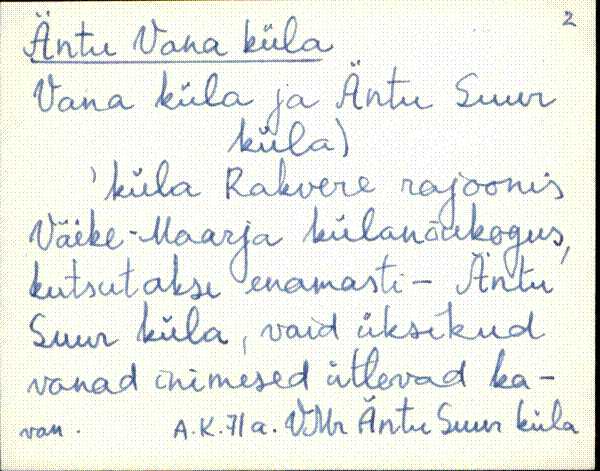 2
Äntu Vana küla
Vana küla ja Äntu Suur
küla)
'küla Rakvere rajoonis
Väike-Maarja külanõukogus,
kutsutakse enamasti - Äntu
Suur küla, vaid üksikud
vanad inimesed ütlevad ka-
van. A.K.71a. VMr Äntu Suur küla